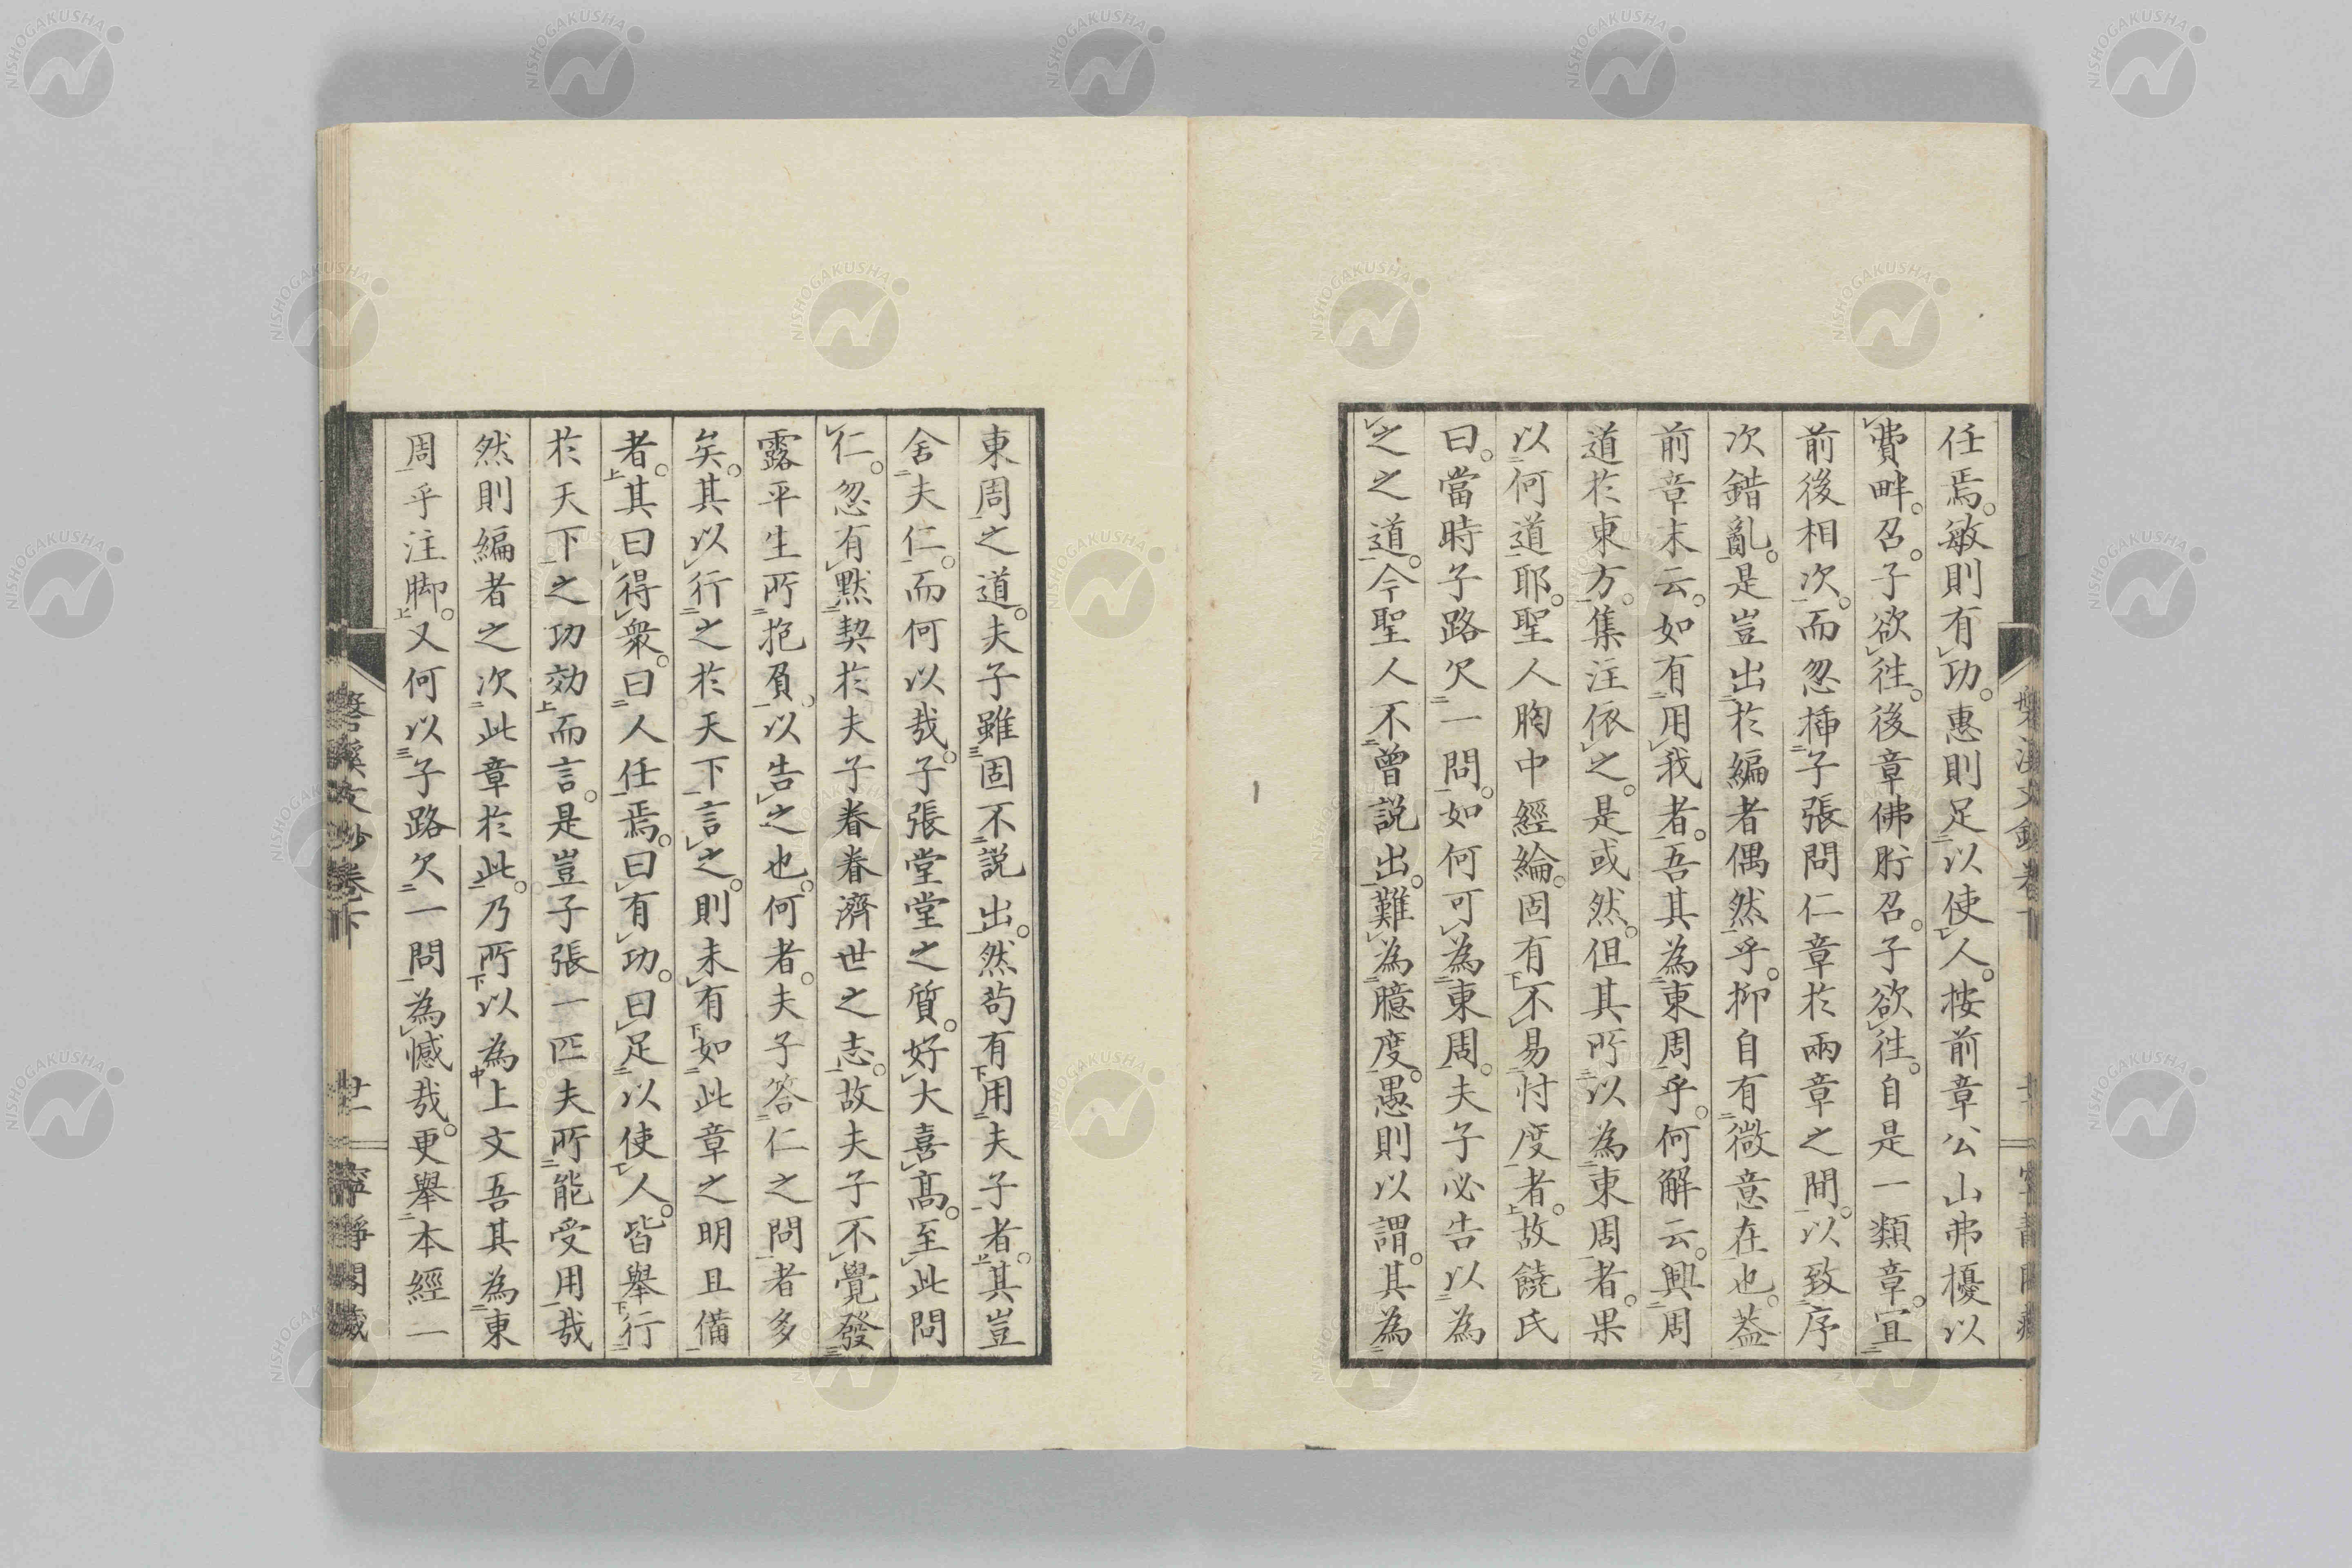 任焉。敏則有功。惠則足以使人。按前章公山弗擾以
費畔。召。子欲往。後章佛肸召。子欲往。自是一類章。宜
前後相次。而忽插子張問仁章於兩章之間。以致序
次錯亂。是豈出於編者偶然乎。抑自有微意在也。葢
前章末云。如有用我者。吾其為東周乎。何解云。興周
道於東方。集注依之。是或然。但其所以為東周者。果
以何道耶。聖人胸中經綸。固有不易忖度者。故饒氏
曰。當時子路欠一問。如何可為東周。夫子必告以為
之之道。今聖人不曾説出。難為臆度。愚則以謂。其為
東周之道。夫子雖固不説出。然苟有用夫子者。其豈
舍夫仁。而何以哉。子張堂堂之質。好大喜高。至此問
仁。忽有默契於夫子眷眷濟世之志。故夫子不覺發
露平生所抱負。以告之也。何者。夫子答仁之問者多
矣。其以行之於天下言之。則未有如此章之明且備
者。其曰得衆。曰人任焉。曰有功。曰足以使人。皆舉行
於天下之功効而言。是豈子張一匹夫所能受用哉
然則編者之次此章於此。乃所以為上文吾其為東
周乎注脚。又何以子路欠一問為憾哉。更舉本經一
磐溪文鈔卷下
廿一
寧靜閣藏